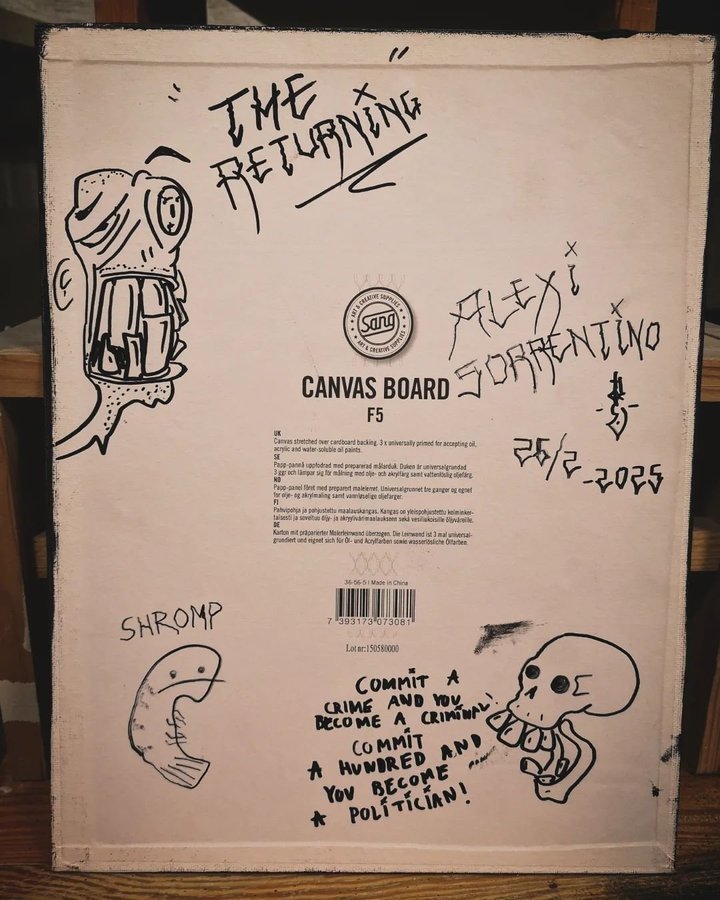 "THE
RETURNING"
ALEXI
SORRENTINO
26/2-2025
ART & CREATIVE SUPPLIES
Sang
ART & CREATIVE SUPPLIES
CANVAS BOARD
F5
UK
Canvas stretched over cardboard backing. 3 x universally primed for accepting oil,
acrylic and water-soluble oil paints.
SE
Papp-pannå uppfodrad med preparerad målarduk. Duken är universalgrundad
3 ggr och lämpar sig för målning med olje- och akrylfärg samt vattenlöslig oljefärg.
NO
Papp-panel foret med preparert malelerret. Universalgrunnet tre ganger og egnet
for olje- og akrylmaling samt vannløselige oljefarger.
FI
Pahvipohja ja pohjustettu maalauskangas. Kangas on yleispohjustettu kolminker-
taisesti ja soveltuu öljy- ja akryylivärimaalaukseen sekä vesiliukoisille öljyväreille.
DE
Karton mit präparierter Malerleinwand überzogen. Die Leinwand ist 3 mal universal-
grundiert und eignet sich für Öl- und Acrylfarben sowie wasserlösliche Ölfarben.
36-56-5 | Made in China
7 393173 073081
Lot nr:150580000
SHROMP
COMMIT A
CRIME AND YOU
BECOME A CRIMINAL
COMMIT
A HUNDRED AND
YOU BECOME
A POLITICIAN!